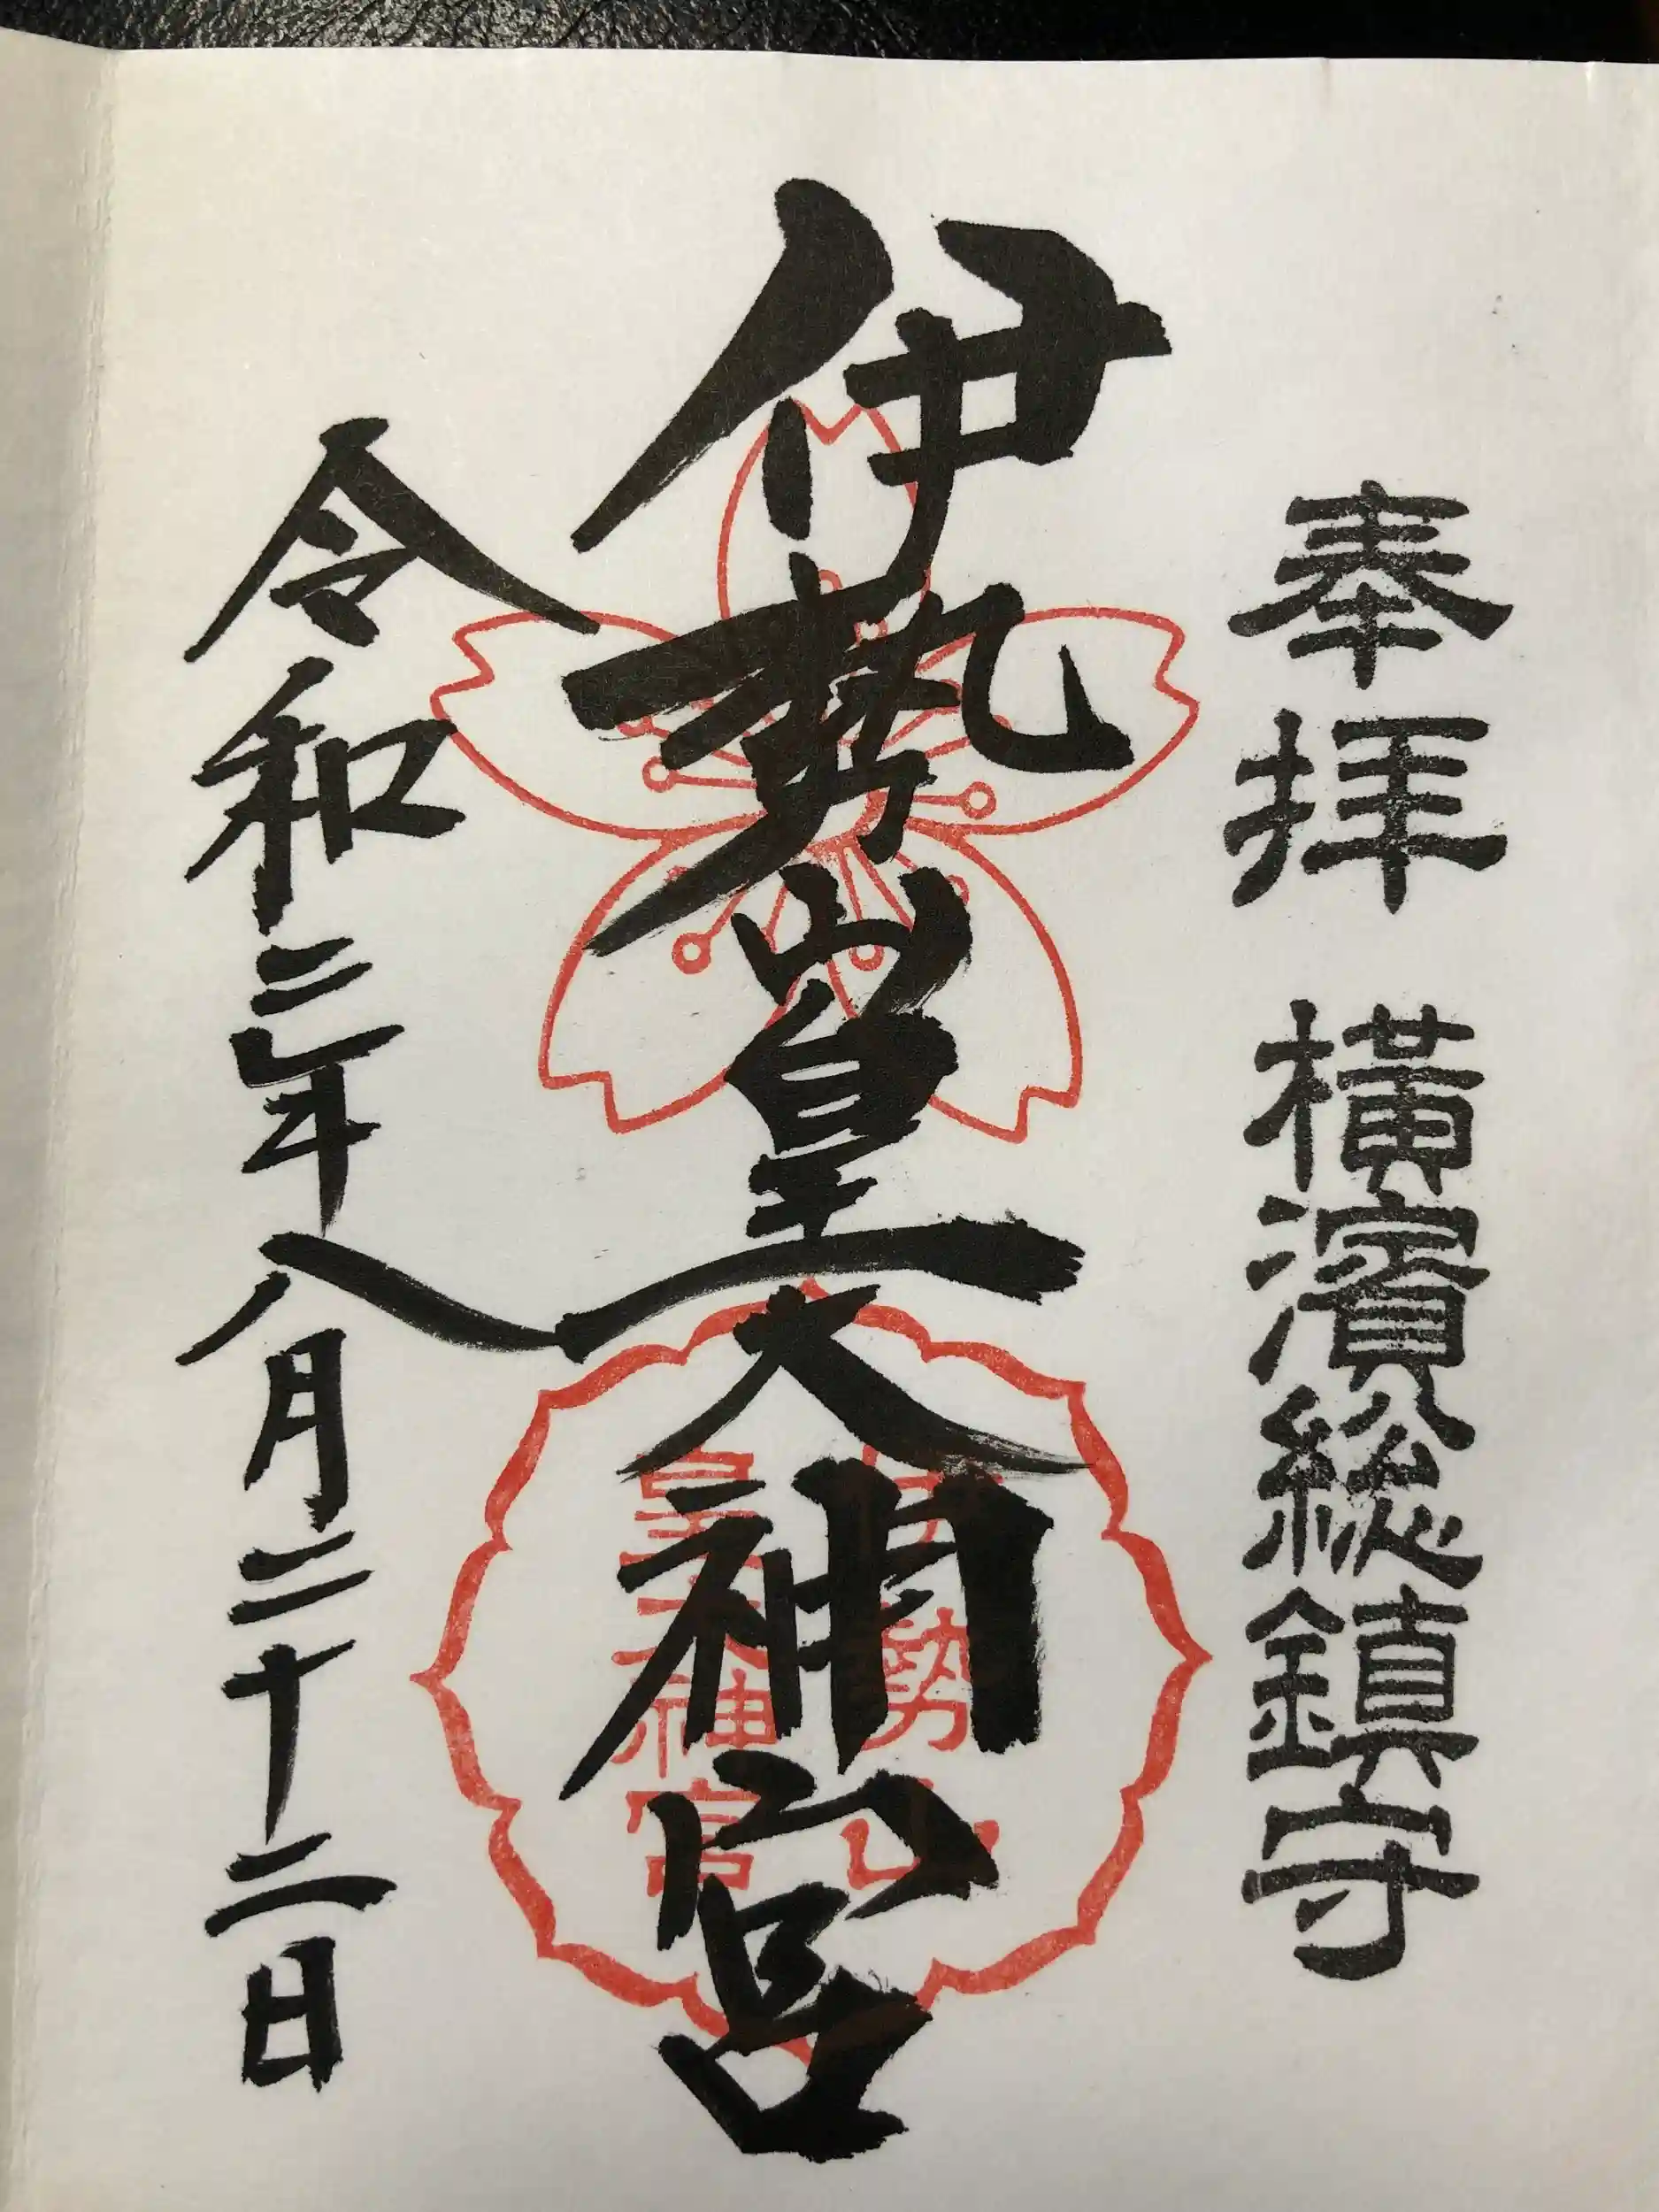 奉拝 橫濱総鎮守
伊勢山皇大神宮
伊勢山
皇大神宮
令和二年八月二十二日